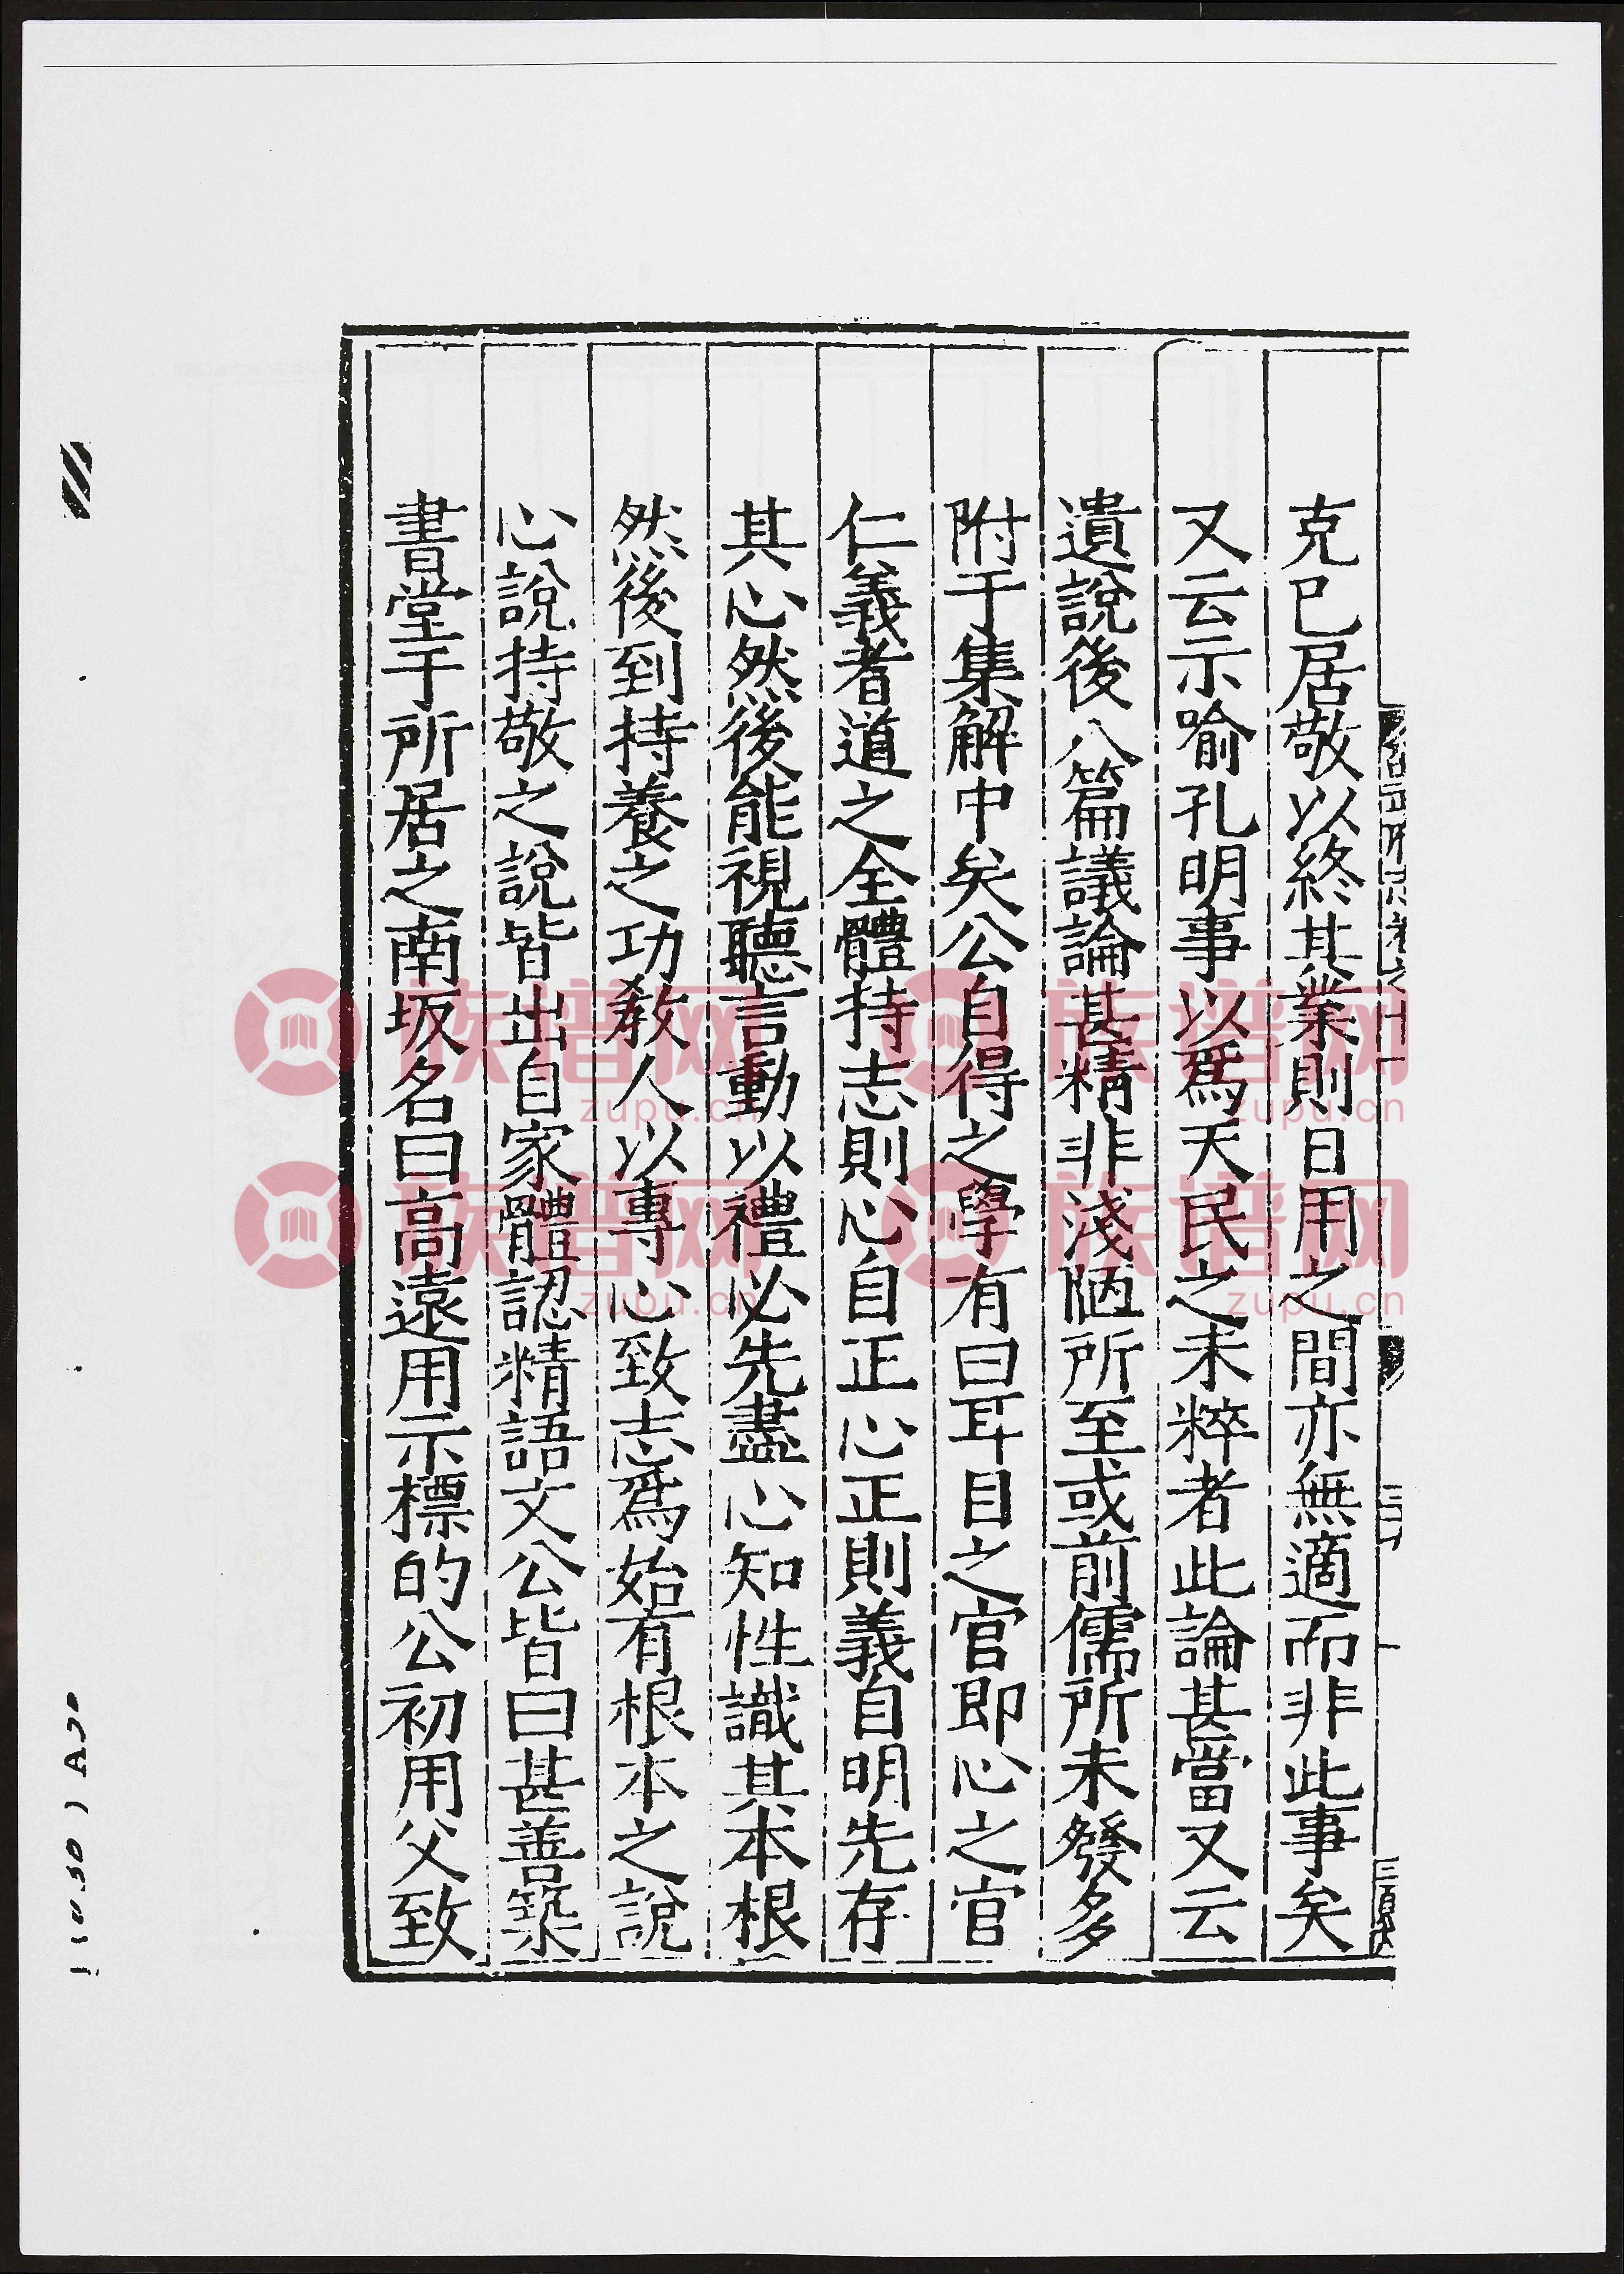 克已居敬以終其業則日用之間亦無適而非此事矣
又云示喻孔明事以爲天民之未粹者此論甚當又云
遺說後八篇議論甚精非淺陋所至或前儒所未發多
附于集解中矣公自得之學有曰耳目之官即心之官
仁義者道之全體持志則心自正心正則義自明先存
其心然後能視聽言動以禮必先盡心知性識其本根
然後到持養之功敎人以專心致志爲始有根本之說
心說持敬之說皆出自家體認精語文公皆曰甚善築
書堂于所居之南坂名曰高遠用示標的公初用父致
族谱网
zupu.cn
族谱网
zupu.cn
族谱网
zupu.cn
族谱网
zupu.cn